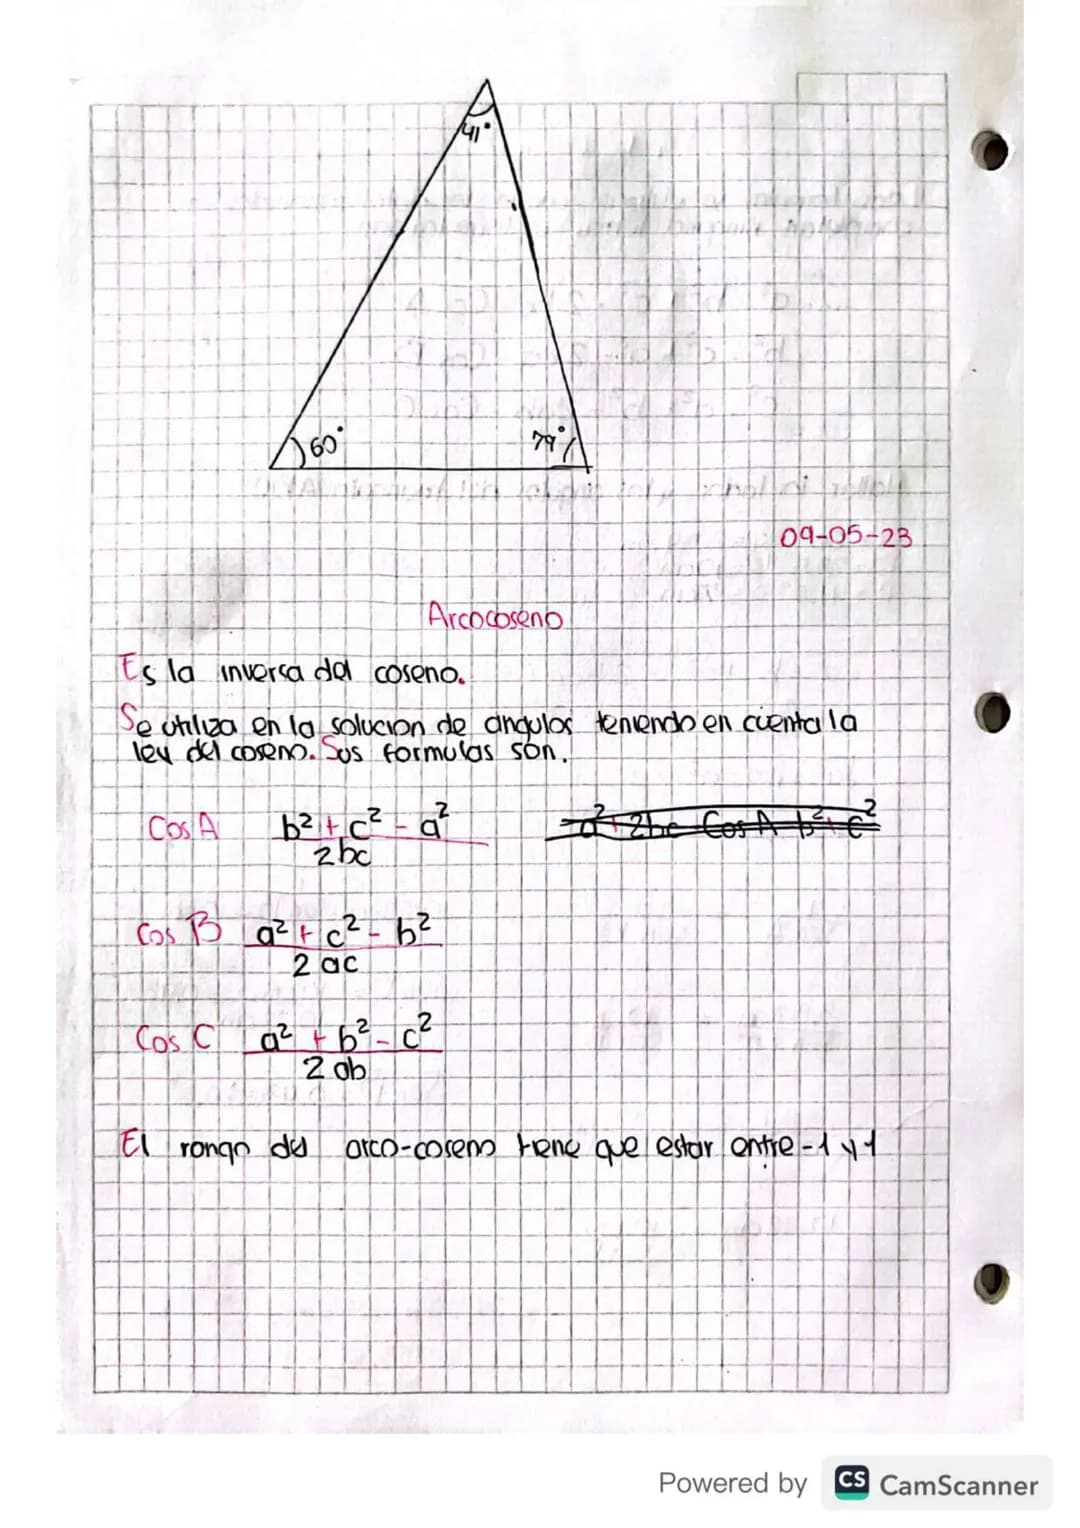 41°
60°
79°
09-05-23
Arcocoseno
Es la inversa del coseno.
Se utiliza en la solucion de angulos teniendo en cuenta la
ley del coseno. Sus formulas son.
Cos A b² + c² - a²
2bc
a² 2bc Cos A b² + c²
Cos B a² + c² - b²
2 ac
Cos C a² + b² - c²
2 ab
El rango del arco-coseno tiene que estar entre -1 y 1
Powered by CS CamScanner